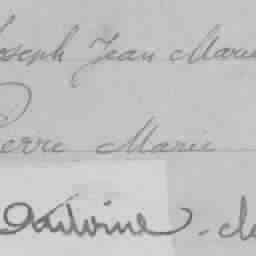 Joseph Jean Marie
Pierre Marie
Antoine